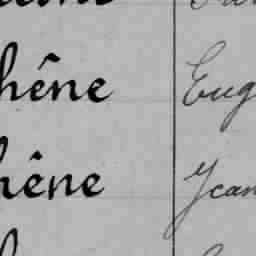 hêne Eug
hêne Jean